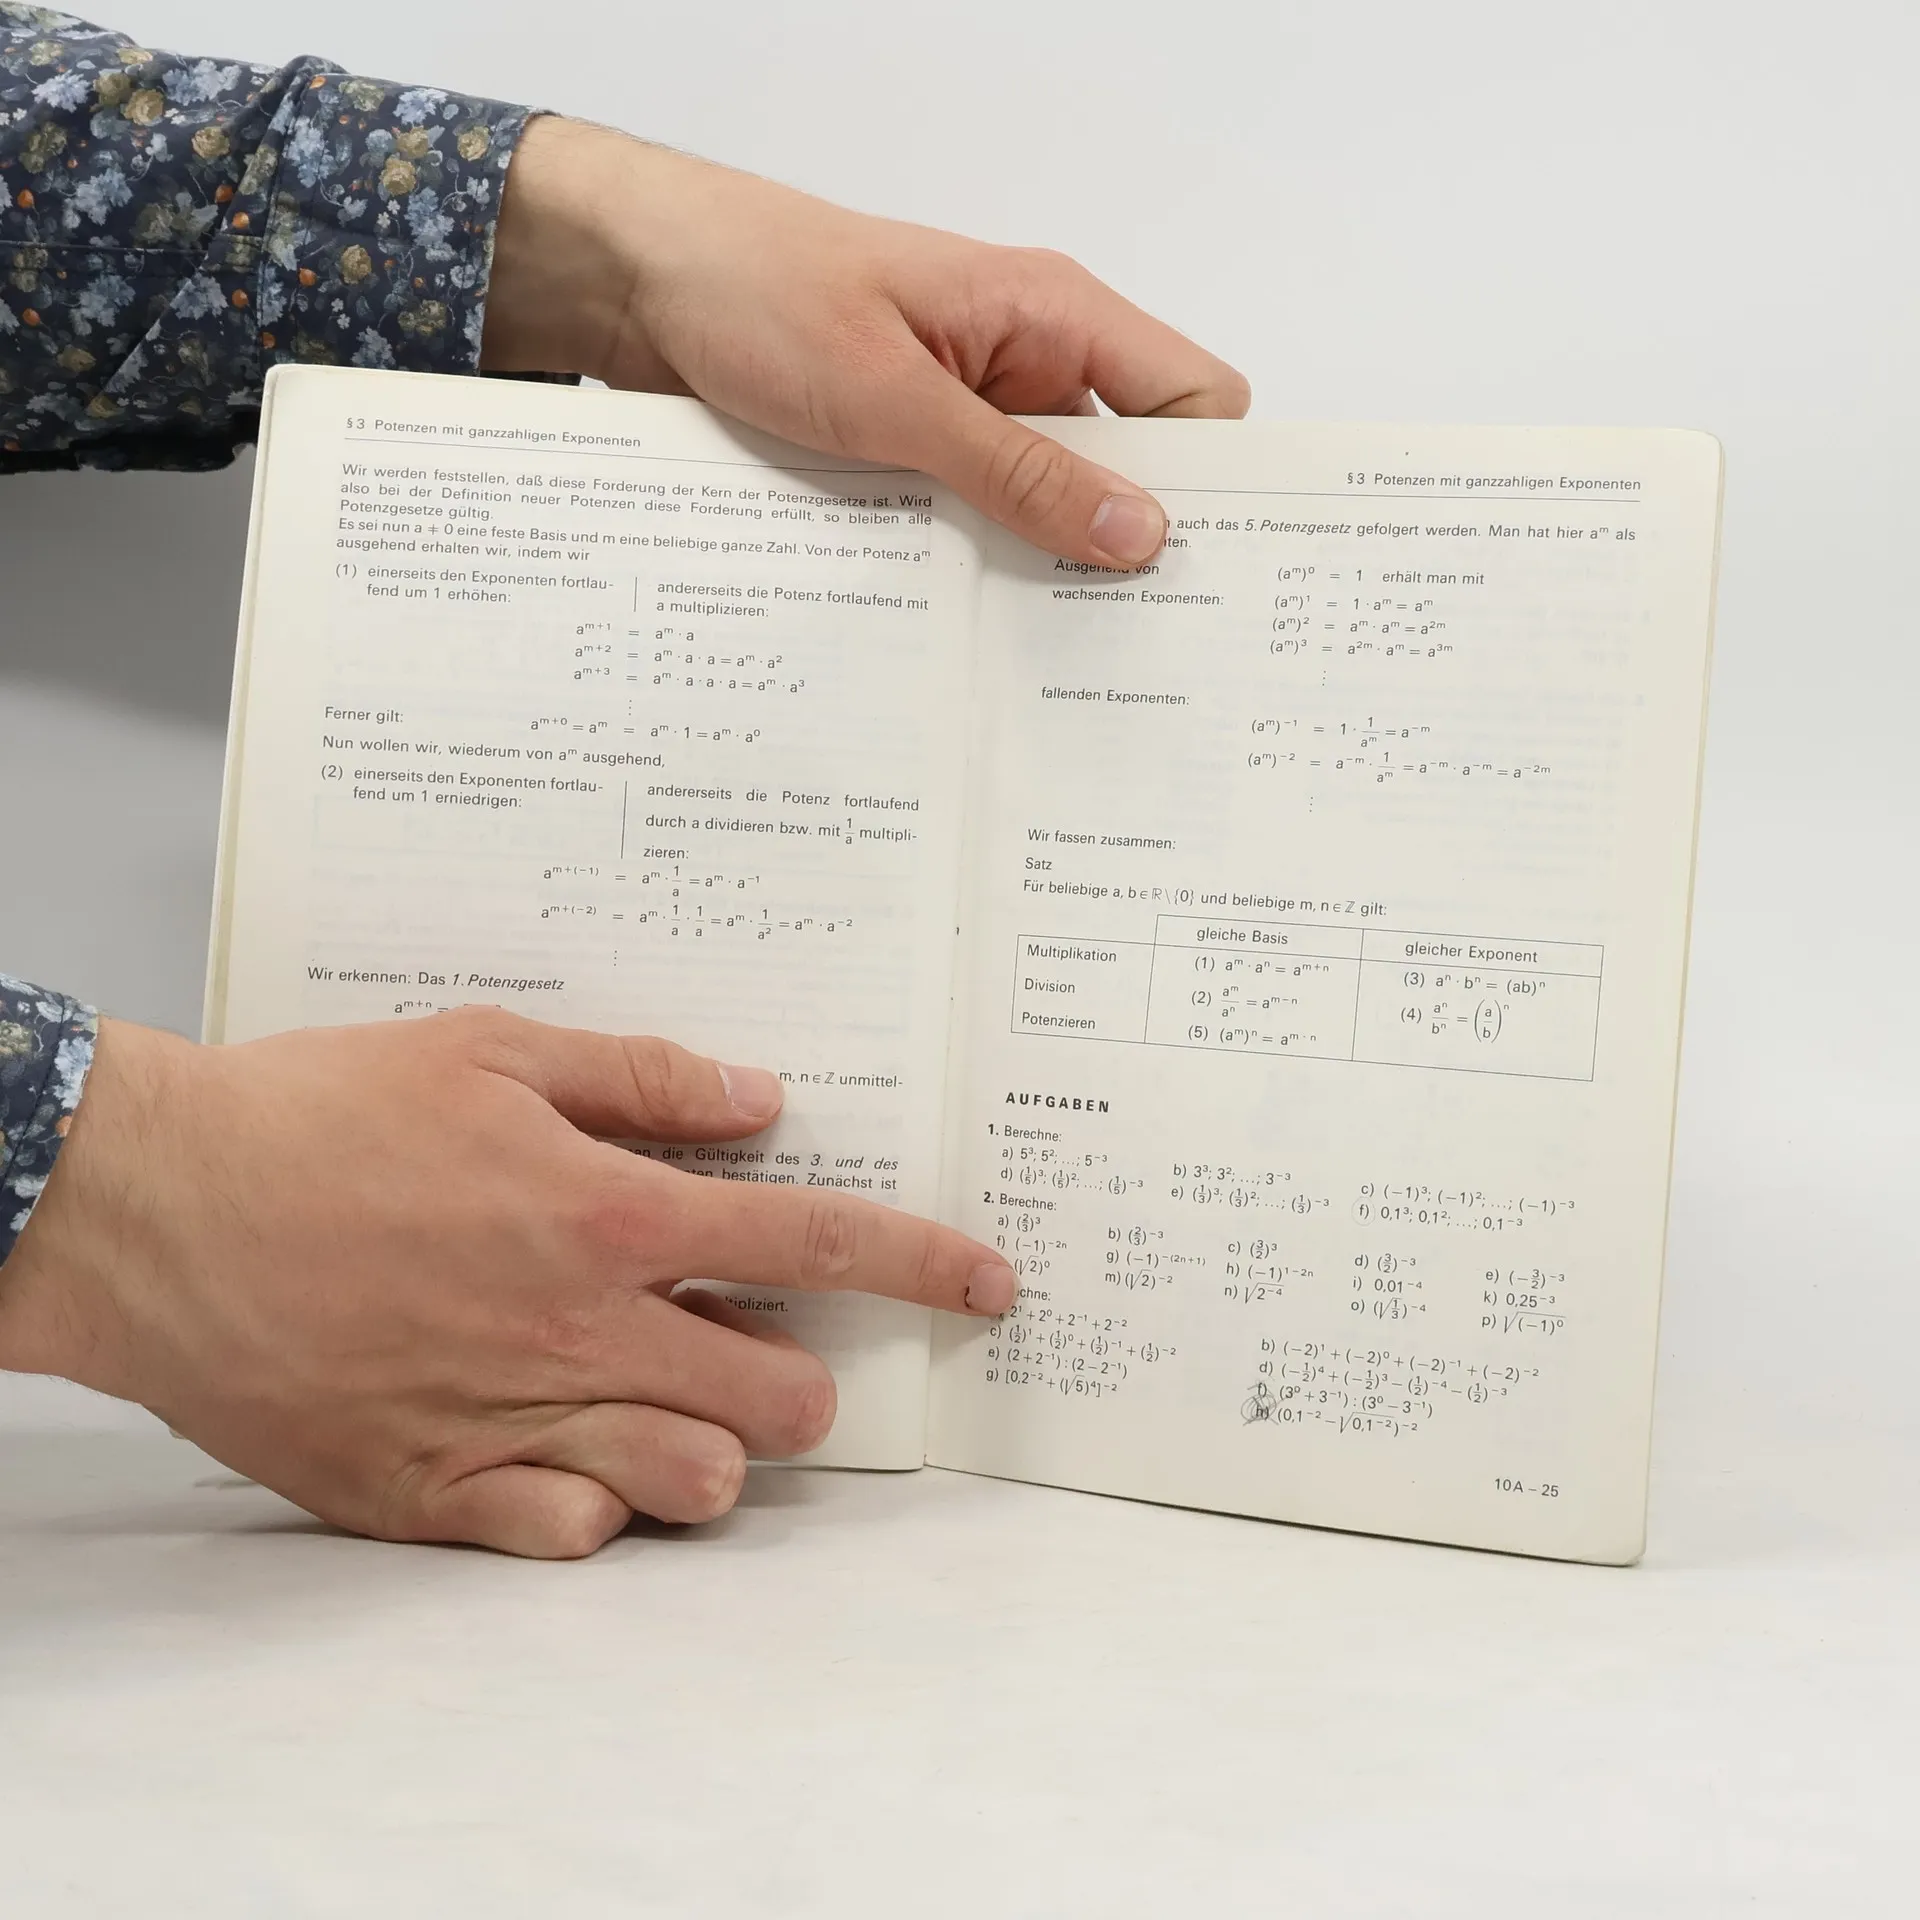 § 3 Potenzen mit ganzzahligen Exponenten
Wir werden feststellen, daß diese Forderung der Kern der Potenzgesetze ist. Wird
also bei der Definition neuer Potenzen diese Forderung erfüllt, so bleiben alle
Potenzgesetze gültig.
Es sei nun a ≠ 0 eine feste Basis und m eine beliebige ganze Zahl. Von der Potenz aᵐ
ausgehend erhalten wir, indem wir
(1) einerseits den Exponenten fortlau-
fend um 1 erhöhen:
andererseits die Potenz fortlaufend mit
a multiplizieren:
aᵐ⁺¹ = aᵐ · a
aᵐ⁺² = aᵐ · a · a = aᵐ · a²
aᵐ⁺³ = aᵐ · a · a · a = aᵐ · a³
⋮
Ferner gilt: aᵐ⁺⁰ = aᵐ = aᵐ · 1 = aᵐ · a⁰
Nun wollen wir, wiederum von aᵐ ausgehend,
(2) einerseits den Exponenten fortlau-
fend um 1 erniedrigen:
andererseits die Potenz fortlaufend
durch a dividieren bzw. mit 1/a multipli-
zieren:
aᵐ⁺⁽⁻¹⁾ = aᵐ · 1/a = aᵐ · a⁻¹
aᵐ⁺⁽⁻²⁾ = aᵐ · 1/a · 1/a = aᵐ · 1/a² = aᵐ · a⁻²
⋮
Wir erkennen: Das 1. Potenzgesetz
aᵐ⁺ⁿ =
m, n ∈ ℤ unmittel-
die Gültigkeit des 3. und des
bestätigen. Zunächst ist
§ 3 Potenzen mit ganzzahligen Exponenten
auch das 5. Potenzgesetz gefolgert werden. Man hat hier aᵐ als
Ausgehend von (aᵐ)⁰ = 1 erhält man mit
wachsenden Exponenten: (aᵐ)¹ = 1 · aᵐ = aᵐ
(aᵐ)² = aᵐ · aᵐ = a²ᵐ
(aᵐ)³ = a²ᵐ · aᵐ = a³ᵐ
⋮
fallenden Exponenten:
(aᵐ)⁻¹ = 1 · 1/aᵐ = a⁻ᵐ
(aᵐ)⁻² = a⁻ᵐ · 1/aᵐ = a⁻ᵐ · a⁻ᵐ = a⁻²ᵐ
⋮
Wir fassen zusammen:
Satz
Für beliebige a, b ∈ ℝ\{0} und beliebige m, n ∈ ℤ gilt:
gleiche Basis gleicher Exponent
Multiplikation (1) aᵐ · aⁿ = aᵐ⁺ⁿ (3) aⁿ · bⁿ = (ab)ⁿ
Division (2) aᵐ/aⁿ = aᵐ⁻ⁿ (4) aⁿ/bⁿ = (a/b)ⁿ
Potenzieren (5) (aᵐ)ⁿ = aᵐ·ⁿ
AUFGABEN
1. Berechne:
a) 5³; 5²; …; 5⁻³ b) 3³; 3²; …; 3⁻³ c) (−1)³; (−1)²; …; (−1)⁻³
d) (1/5)³; (1/5)²; …; (1/5)⁻³ e) (1/3)³; (1/3)²; …; (1/3)⁻³ f) 0,1³; 0,1²; …; 0,1⁻³
2. Berechne:
a) (2/3)³ b) (2/3)⁻³ c) (3/2)³ d) (3/2)⁻³ e) (−3/2)⁻³
f) (−1)⁻²ⁿ g) (−1)⁻⁽²ⁿ⁺¹⁾ h) (−1)¹⁻²ⁿ i) 0,01⁻⁴ k) 0,25⁻³
(√2)⁰ m) (√2)⁻² n) √2⁻⁴ o) (√1/3)⁻⁴ p) √(−1)⁰
2¹ + 2⁰ + 2⁻¹ + 2⁻² b) (−2)¹ + (−2)⁰ + (−2)⁻¹ + (−2)⁻²
c) (1/2)¹ + (1/2)⁰ + (1/2)⁻¹ + (1/2)⁻² d) (−1/2)⁴ + (−1/2)³ − (1/2)⁻⁴ − (1/2)⁻³
e) (2 + 2⁻¹) : (2 − 2⁻¹) f) (3⁰ + 3⁻¹) : (3⁰ − 3⁻¹)
g) [0,2⁻² + (√5)⁴]⁻² h) (0,1⁻² − √0,1⁻²)⁻²
10A – 25